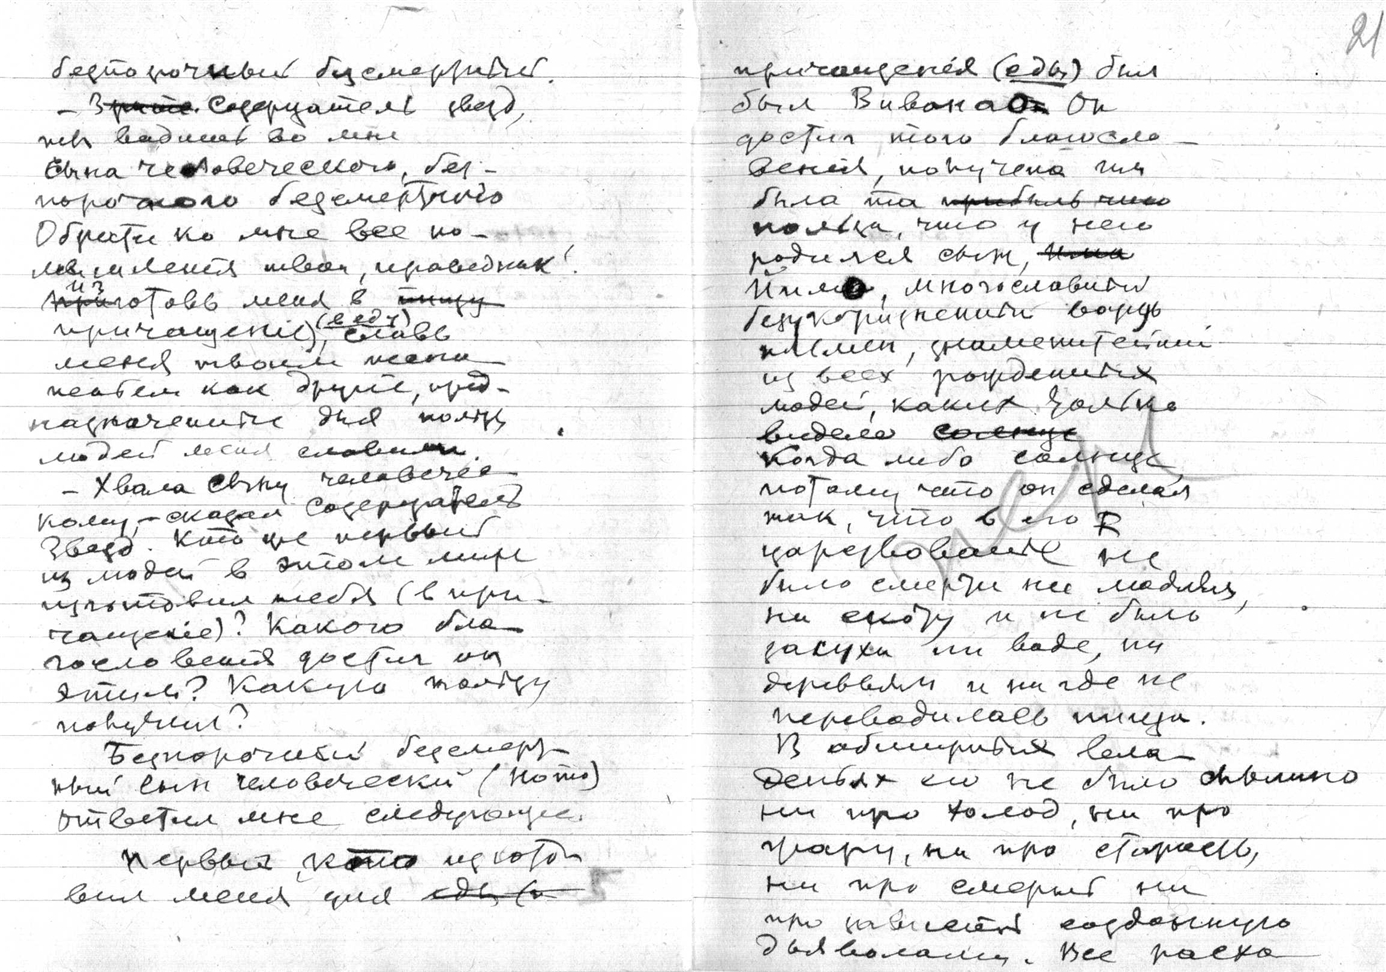 безпорочный безсмертный.
– Созерцатель звезд,
ты видишь во мне
сына человеческого, без-
порочного безсмертного
Обрати ко мне все по-
мышления твои, праведник!
изготовь меня в пищу
причащение), (в еду) славь
меня твоим
неабем как другие, пред-
назначенные для пользы
людей меня славили.
– Хвала сыну человечес-
кому, – сказал Созерцатель
Звезд. Кто же первый
из людей в этом мире
изготовил тебя (в при-
чащение)? Какого бла-
гословения достиг он
этим? Какую пользу
получил?
Безпорочный безсмерт-
ный сын человеческий (Хото)
ответил мне следующее.
Первый, кто изгото-
вил меня для еды (и
21
причащения (еды) был
был Вивана Он
достиг того благосло-
вения, получена им
была та прибыль что
польза, что у него
родился сын, има
Йима, многославный
безукоризненный вождь
племен, знаменитейший
из всех рожденных
людей, каких только
видело солнце
когда либо солнце,
потому что он сделал
так, что в его
царствование не
было смерти ни людям,
ни скоту и не было
засухи ни воде, ни
деревьям и нигде не
переводилась пища.
В обширных вла-
деньях его не было слышно
ни про холод, ни про
жару, ни про старость,
ни про смерть ни
про зависть созданную
дьяволами. Все